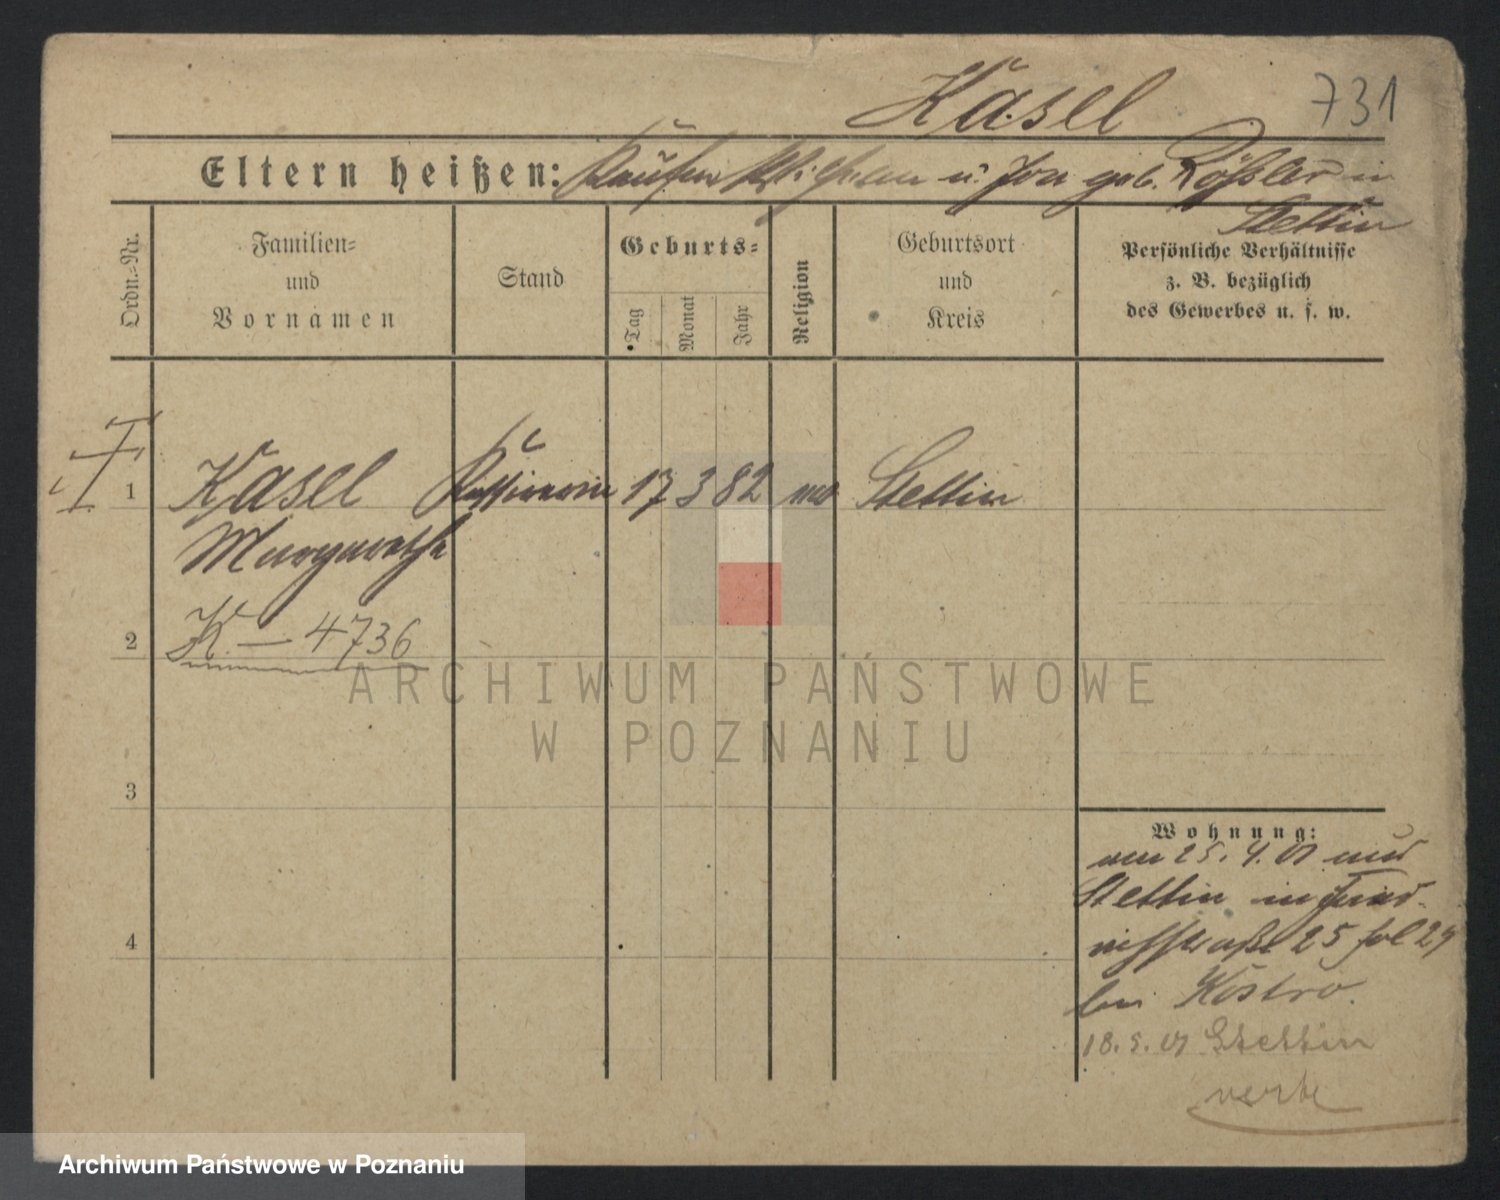 Kasel 731
Eltern heißen: Kaufm Wilhelm u. geb. Rößler in
Stettin
Ordn.-Nr.
Familien-
und
Vornamen
Stand
Geburts-
Tag
Monat
Jahr
Religion
Geburtsort
und
Kreis
Persönliche Verhältnisse
z. B. bezüglich
des Gewerbes u. s. w.
1 Kasel Kassirerin 17 3 82 Stettin
Margarethe
2 K – 4736
3
4
Wohnung:
25. 4. 01
Stettin in
25 24
bei Köstro.
18. 5. 01 Stettin
ARCHIWUM PAŃSTWOWE
W POZNANIU
Archiwum Państwowe w Poznaniu